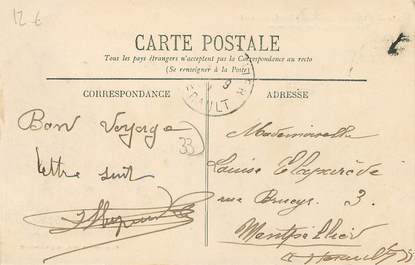 12 €
CARTE POSTALE
Tous les pays étrangers n'acceptent pas la Correspondance au recto
(Se renseigner à la Poste)
CORRESPONDANCE
ADRESSE
HÉRAULT
Bon Voyage
33
lettre suit
Mademoiselle
Louise Elaparède
rue Brueys. 3.
Montpellier
Hérault